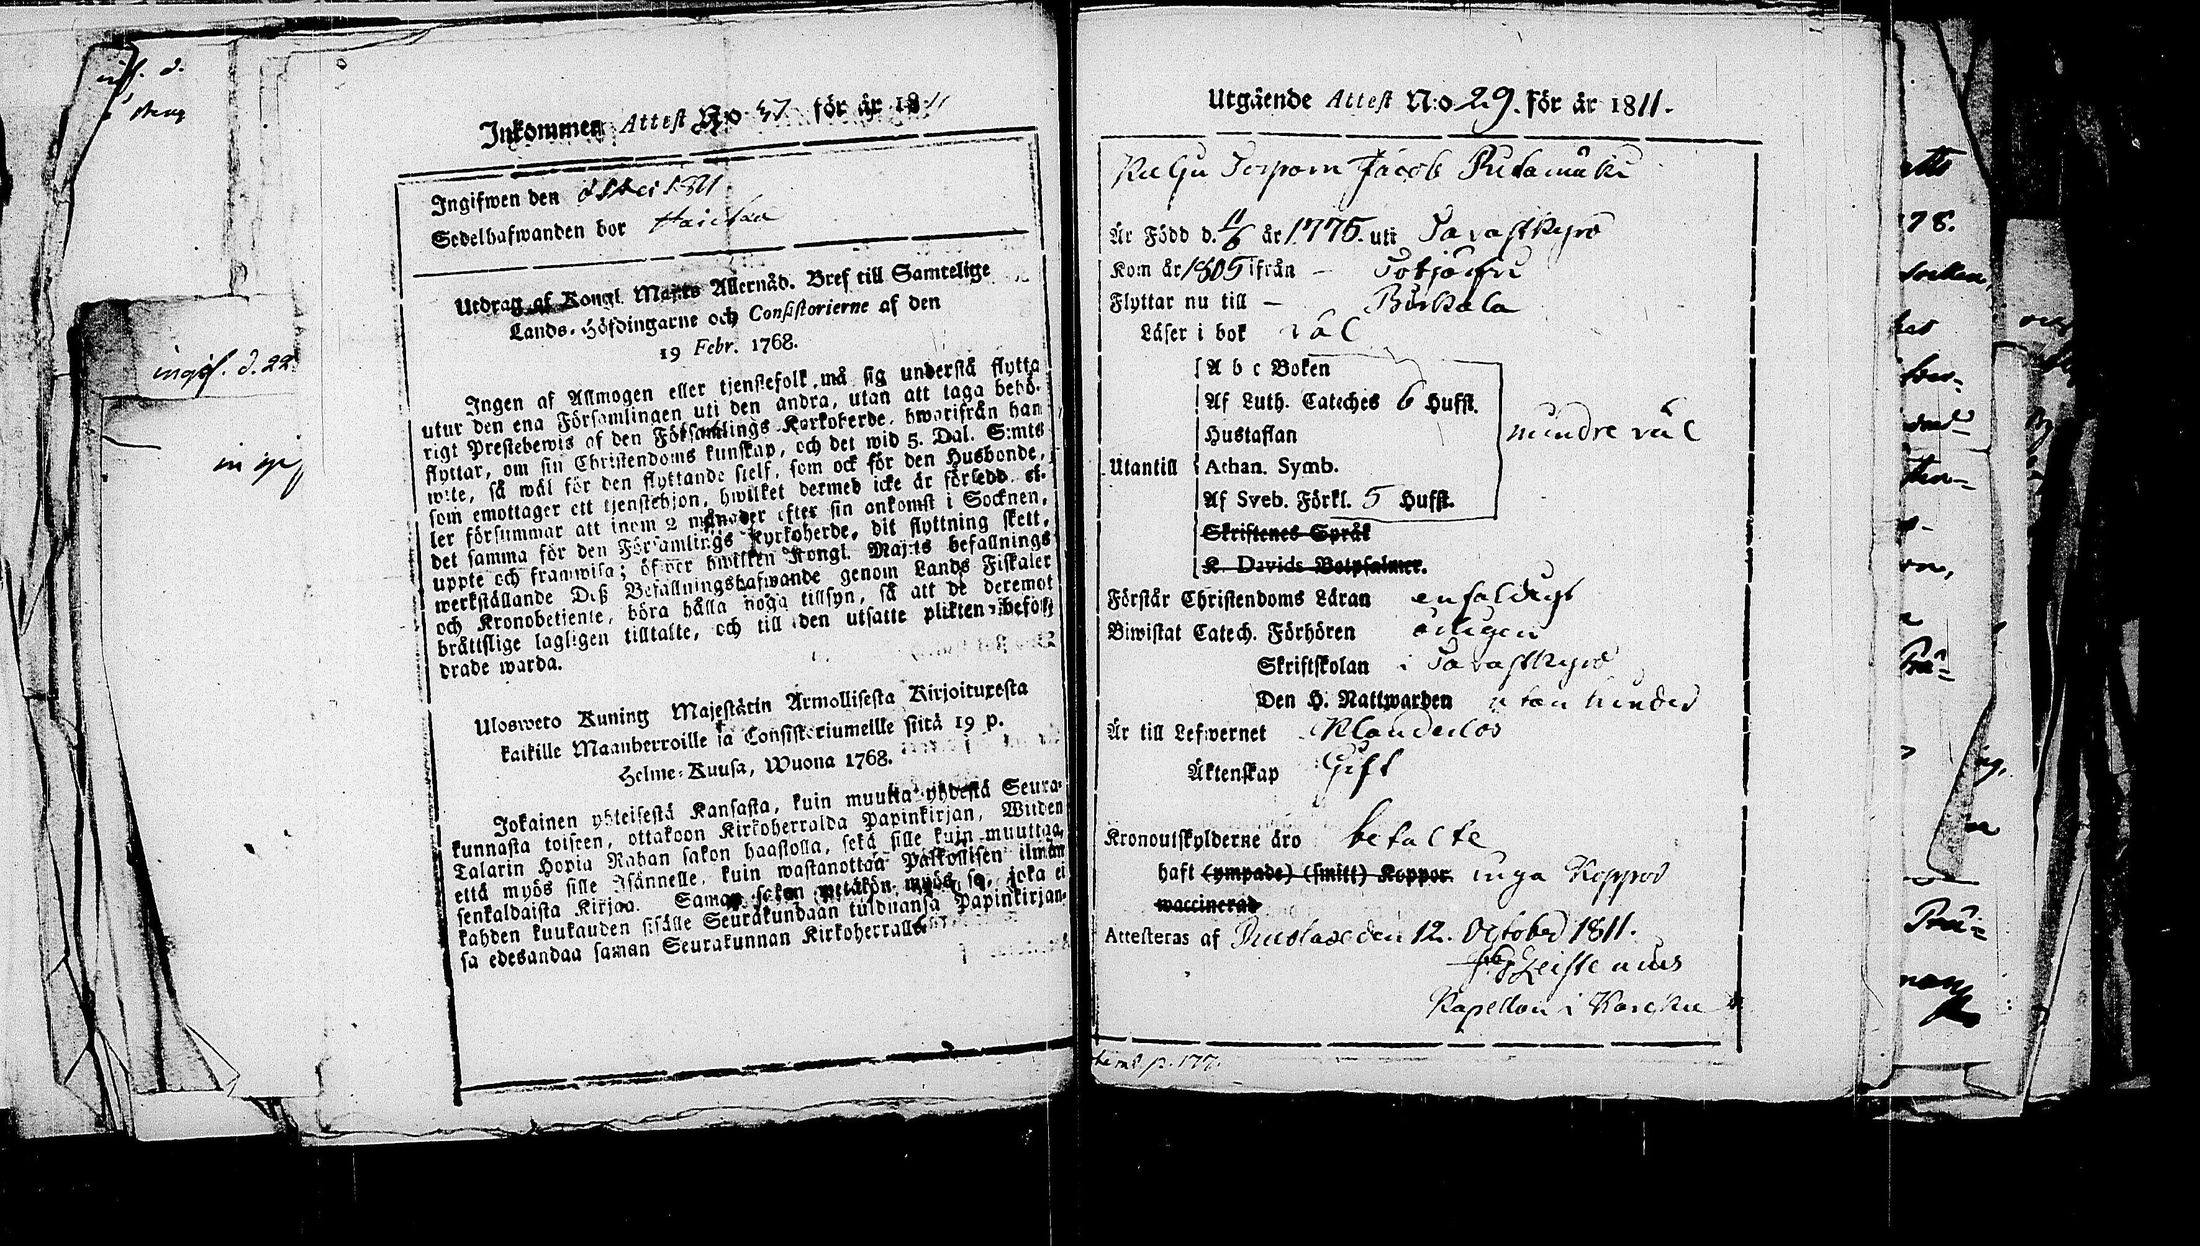 ingif. d. 22
Inkommen Attest No 37 för år 1811
Ingifwen den
Sedelhafwanden bor
Utdrag af Kongl. Maj:ts Allernåd. Bref till Samtelige
Lands-Höfdingarne och Consistorierne af den
19 Febr. 1768.
Ingen af Allmogen eller tjenstefolk må sig understå flytta
utur den ena Församlingen uti den andra, utan att taga behö-
rigt Prestebewis af den Församlings Kyrkoherde, hwarifrån han
flyttar, om sin Christendoms kunskap, och det wid 5. Dal. S:mts
wite, så wäl för den flyttande sielf, som ock för den Husbonde,
som emottager ett tjenstehjon, hwilket dermed icke är försedd el-
ler försummar att inom 2 månader efter sin ankomst i Socknen,
det samma för den Församlings Kyrkoherde, dit flyttning skett,
uppte och framwisa; öfwer hwilken Kongl. Maj:ts befallnings
werkställande Deß Befallningshafwande genom Lands Fiskaler
och Kronobetjente, böra hålla noga tillsyn, så att de deremot
bråttslige lagligen tilltalte, och till den utsatte plikten befor-
drade warda.
Ulosweto Kuning Majestätin Armollisesta Kirjoituxesta
kaikille Maanherroille ja Consistoriumeille siitä 19 p.
Helme-Kuusa, Wuona 1768.
Jokainen yhteisestä Kansasta, kuin muutta yhdestä Seura-
kunnasta toiseen, ottakoon Kirkoherralda Papinkirjan, Wiiden
Talarin Hopia Rahan sakon haastolla, sekä sille kuin muuttaa,
että myös sille Isännelle, kuin wastanottaa Palkollisen ilman
senkaldaista Kirjaa. Saman sakon wetäkön myös se, joka ei
kahden kuukauden sisälle Seurakundaan tulduansa Papinkirjan-
sa edesandaa saman Seurakunnan Kirkoherralle.
Utgående Attest N:o 29. för år 1811.
Torparn Jacob
Är Född d. 11/6 år 1775. uti Tavastkyro
Kom år 1805 ifrån –
Flyttar nu till – Birkala
Läser i bok väl
A b c Boken
Af Luth. Cateches 6 Hufst.
Hustaflan
mindre väl
Utantill
Athan. Symb.
Af Sveb. Förkl. 5 Hufst.
Skriftenes Språk
K. Davids Botpsalmer.
Förstår Christendoms Läran enfaldigt
Biwistat Catech. Förhören årligen
Skriftskolan i Tavastkyro
Den H. Nattwarden utan hinder
Är till Lefwernet Klanderlös
Äktenskap Gift
Kronoutskylderne äro betalte
haft (ympade) (smitt) Koppor. inga Koppor
waccinerad
Attesteras af den 12. October 1811.
Kapellan i
p. 177.